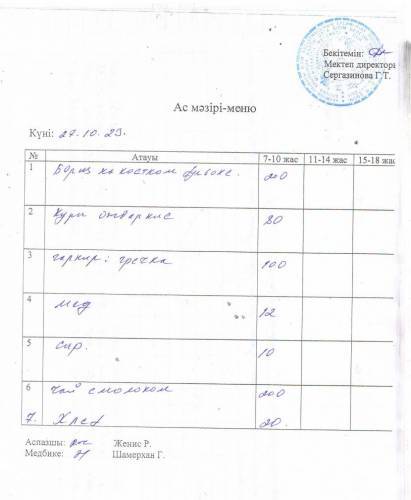 Бекітемін:
Мектеп директоры
Сергазинова Г.Т.
Ас мәзірі-меню
Күні: 27.10.23.
№ Атауы 7-10 жас 11-14 жас 15-18 жас
1 Борщ на костном бульоне. 200
2 Куры отварные 80
3 гарнир: гречка 100
4 мед 12
5 сыр. 10
6 чай с молоком 200
7. Хлеб 20.
Аспазшы: Женис Р.
Медбике: Шамерхан Г.